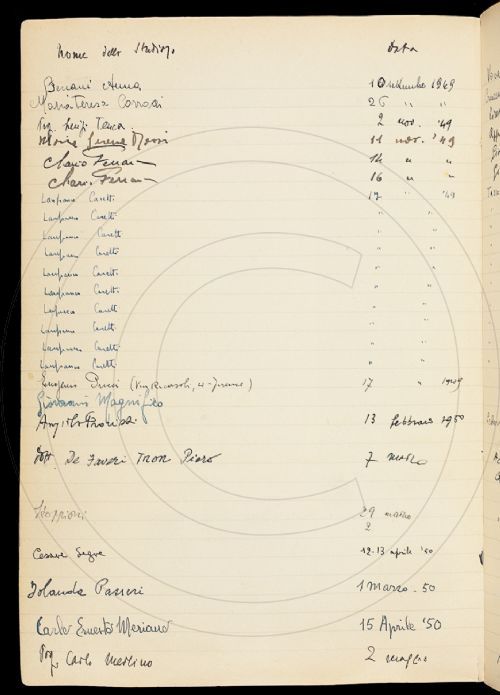 Nome dello Studioso Data
Anna 10 settembre 1949
Maria Teresa Corradi 26 " "
Luigi 2 nov. '49
11 nov. '49
Mario Ferrari 14 " "
Mario Ferrari 16 " "
Lanfranco Caretti 17 " '49
Lanfranco Caretti " "
Lanfranco Caretti " "
Lanfranco Caretti " "
Lanfranco Caretti " "
Lanfranco Caretti " "
Lanfranco Caretti " "
Lanfranco Caretti " "
Lanfranco Caretti " "
Lanfranco Caretti " "
Eugenio Ducci (Via Ricasoli, 4 - Firenze) 17 " 1949
Giovanni Magnifico
Angiolo 13 febbraio 1950
Dott. De Faveri Tron Piero 7 marzo
29 marzo
2
Cesare Segre 12-13 aprile '50
Jolanda Passeri 1 Marzo. 50
Carlo Ernesto Meriano 15 Aprile '50
Carlo Merlino 2 maggio